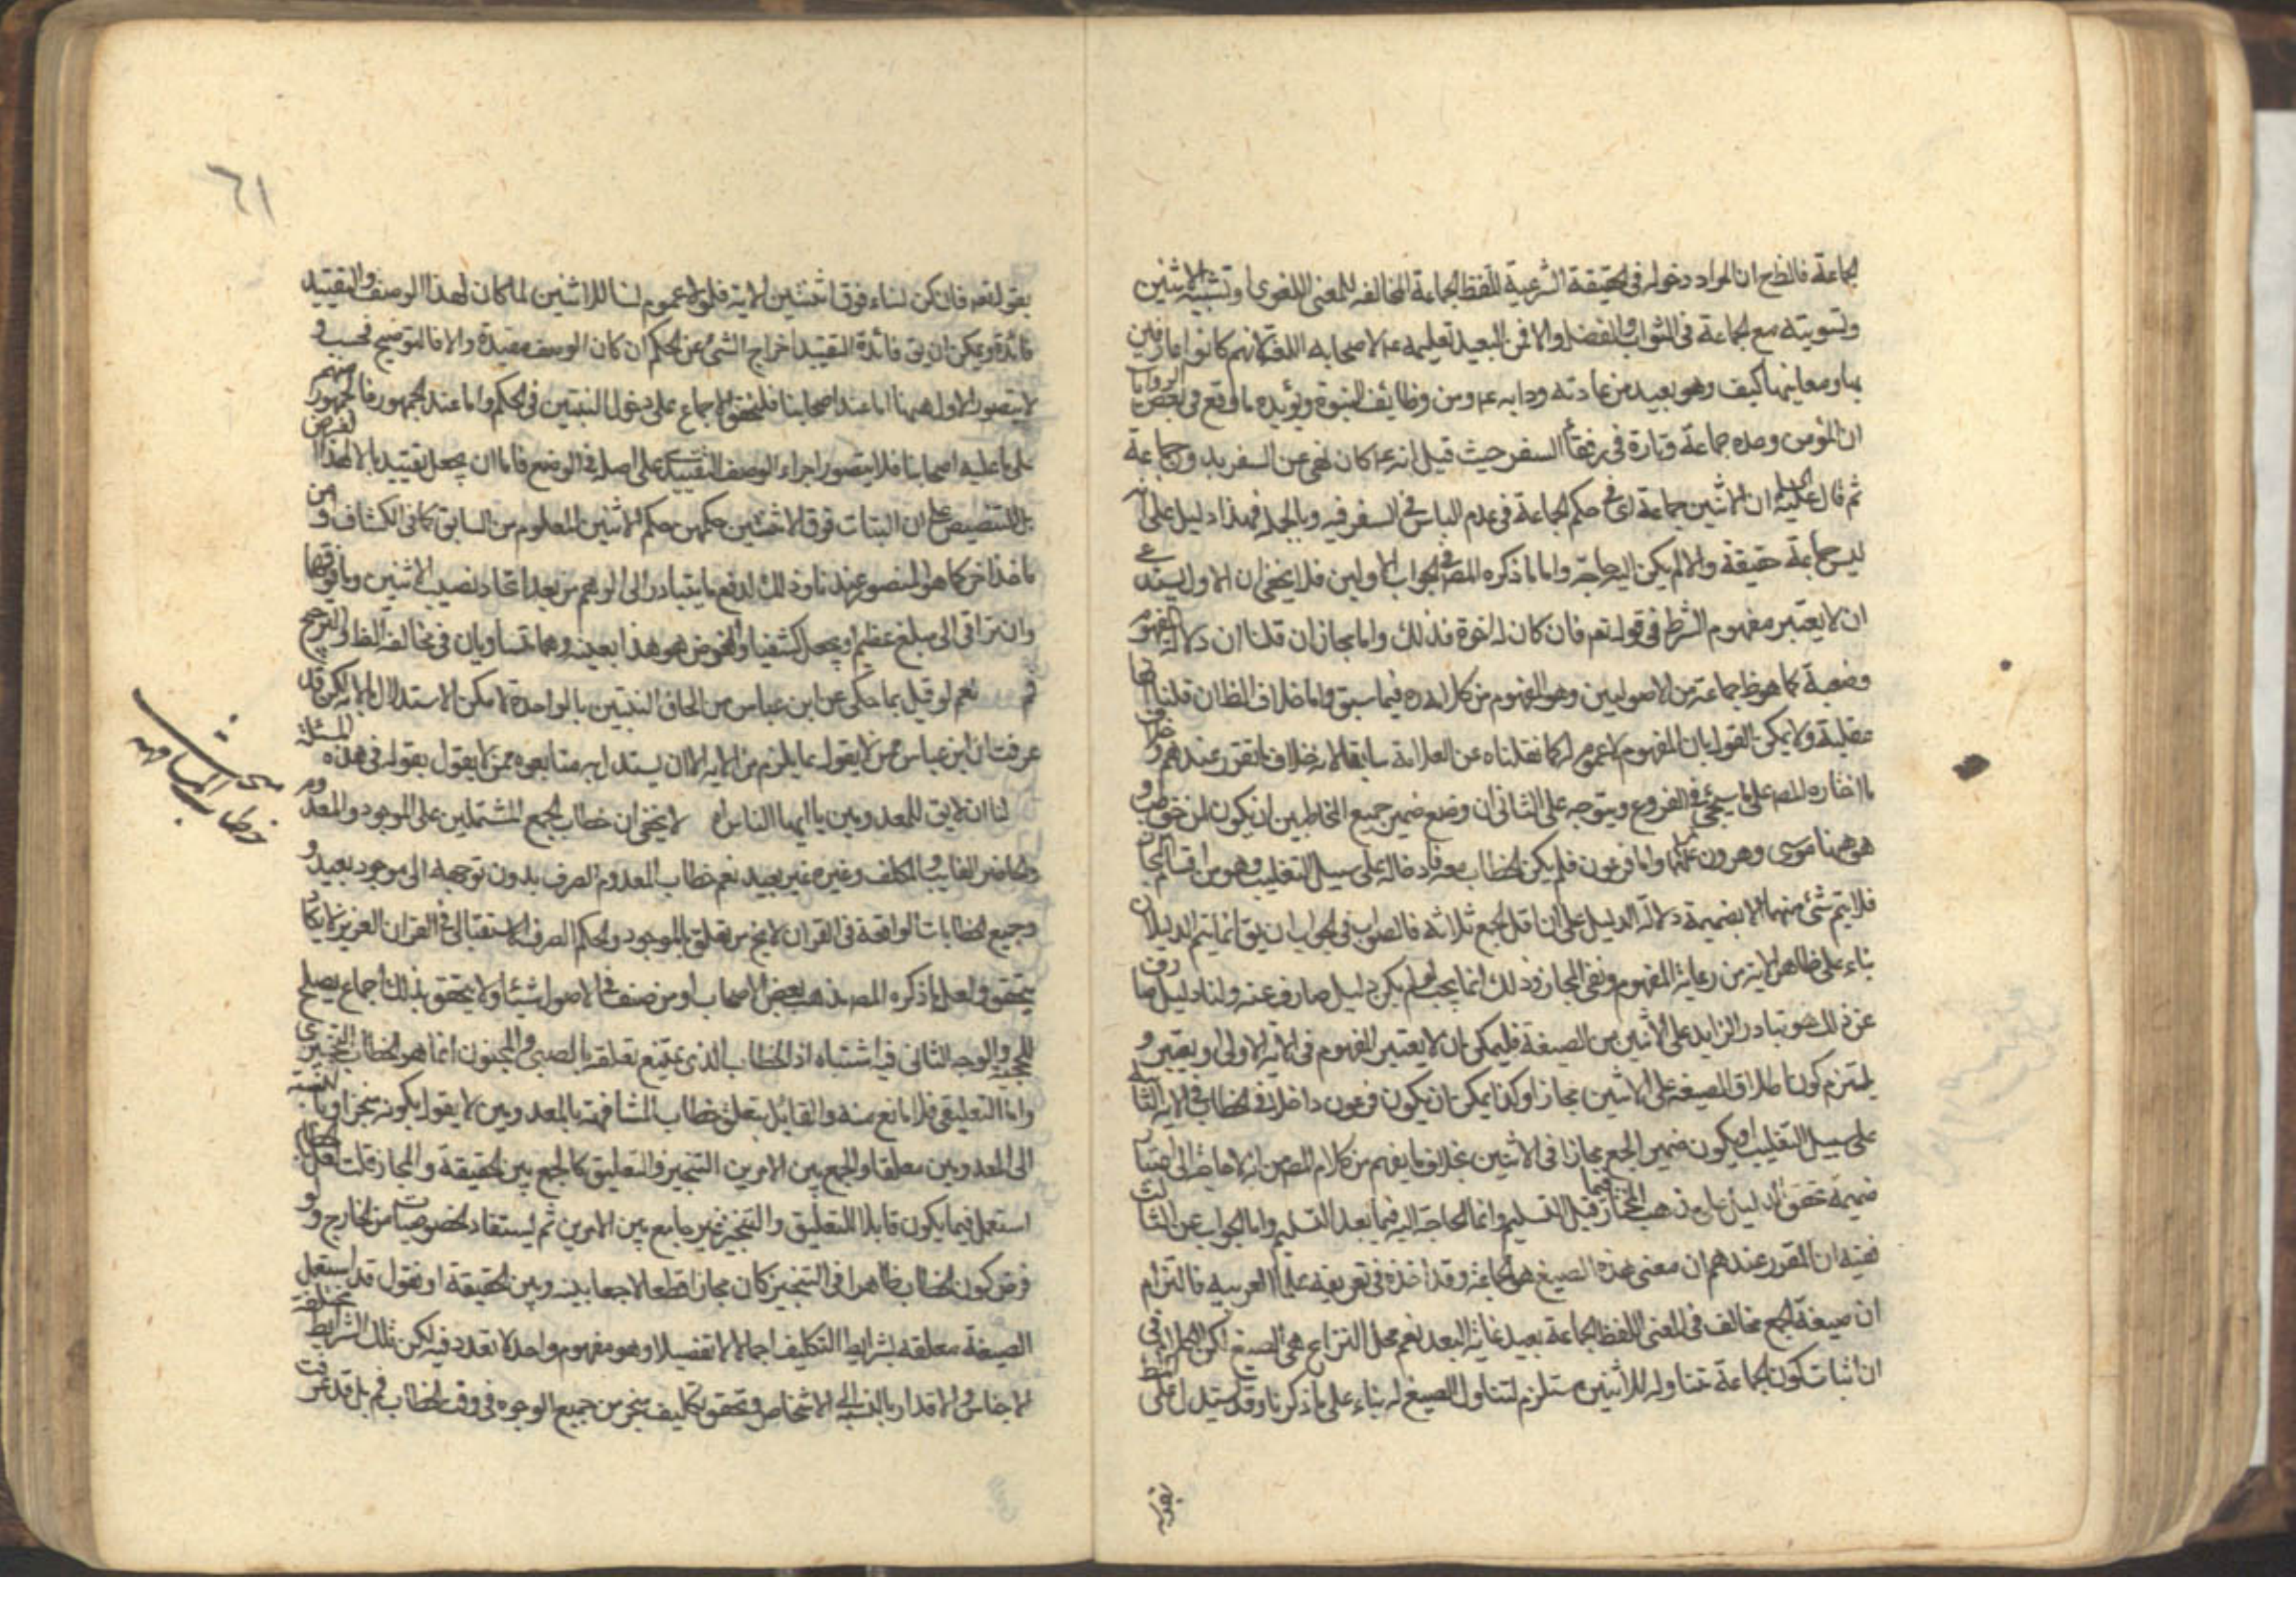 جماعة فالظ ان المراد دخوله فى الحقيقة الشرعية للفظ الجماعة المخالفه للمعنى اللغوى او تشبيه الاثنين
وتسويته مع الجماعة فى الثواب والفضل والا فمن البعيد تعليمه عم لاصحابه اللغة لانهم كانوا عارفين
بها ومعانيها كيف وهو بعيد من عادته ودابه عم ومن وظائف النبوة ويؤيده ما وقع فى بعض الروايات
ان المؤمن وحده جماعة وتارة فى رفقاء السفر حيث قيل انه عم كان نهى عن السفر بدون جماعة
ثم قال عليه ان الاثنين جماعة اى فى حكم الجماعة فى عدم الباس فى السفر فيه وبالجملة فهذا دليل على انه
ليس جماعة حقيقة والا لم يكن اليه حاجة واما ما ذكره المص فى الجواب الاولين فلا يخفى ان الاول يستدعى
ان لا يعتبر مفهوم الشرط فى قوله تعم فان كان له اخوة فذلك واما مجاز ان قلنا ان دلالة المفهوم
وضعية كما هو ظ جماعة من الاصوليين وهو المفهوم من كلامه فيما سبق واما خلاف الظ ان قلنا انها
عقلية ولا يمكن القول بان المفهوم لا عموم له كما نقلناه عن العلامة سابقا لانه خلاف ما تقرر عندهم وخلاف
ما اختاره المص على ما سيجئ فى الفروع ويتوجه على الثانى ان وضع ضمير جميع المخاطبين ان يكون لمن خوطب و
هو ههنا موسى وهرون عم واما فرعون فلم يكن الخطاب معه فادخاله على سبيل التغليب وهو من اقسام المجاز
فلا يتم شئ منهما الا بضميمة دلالة الدليل على ان اقل الجمع ثلاثه فالصواب فى الجواب ان يق انما يتم الدليلان
بناء على ظاهر الاية من رعاية المفهوم ونفى المجاز وذلك انما يجب لو لم يكن دليل صارف عنه ولنا دليل صارف
عن ذلك هو تبادر الزايد على الاثنين من الصيغة فليمكن ان لا يعتبر المفهوم فى الاية الاولى او يعتبر و
يلتزم كون اطلاق الصيغة على الاثنين مجازا وكذا يمكن ان يكون فرعون داخلا فى الخطاب فى الاية الثانية
على سبيل التغليب او يكون ضمير الجمع مجازا فى الاثنين بخلاف ما يفهم من كلام المص من انه لا حاجة الى اعتبار
ضميمة تحقق الدليل على مذهب المختار فيما قبل التسليم وانما الحاجة اليه فيما بعد التسليم واما الجواب عن الثالث
ففيه ان المقرر عندهم ان معنى هذه الصيغ هو الجماعة وقد اخذه فى تعريفه علماء العربيه فالتزام
ان صيغة الجمع مخالف فى المعنى للفظ الجماعة بعيد غاية البعد نعم محل النزاع هى الصيغ لكن الكلام فى
ان اثبات كون الجماعة متناوله للاثنين مستلزم لتناول الصيغ له بناء على ما ذكرنا وقد يستدل على
٦١
بقوله تعم فان كن نساء فوق اثنتين الاية فلولا عموم نساء للاثنين لما كان لهذا الوصف والتقييد
فائدة ويمكن ان يق فائدة التقييد اخراج الشئ عن الحكم ان كان الوصف مقيدة والا فالتوضيح فحسب و
لا يتصور الاول ههنا اما عند اصحابنا فلتحقق الاجماع على دخول البنتين فى الحكم واما عند الجمهور فالجمهور منهم
على ما عليه اصحابنا فلا يتصور اجراء الوصف التقييدى على اصل فى الوضع فاما ان يجعل تقييدا لا لهذا الغرض
بل للتنصيص على ان البنات فوق الاثنتين حكمهن حكم الاثنين المعلوم من السابق كما فى الكشاف و من
ماخذ اخر كما هو المنصور عندنا وذلك لدفع ما يتبادر الى الوهم من بعد اتحاد نصيب الاثنين وما فوقها
وان تراقى الى مبلغ عظيم او يجعل كشفيا والغرض هو هذا بعينه وهما متساويان فى مخالفة الظ والترجيح
نعم لو قيل بما حكى عن ابن عباس من الحاق البنتين بالواحدة لامكن الاستدلال بالاية لكن قد
عرفت ان ابن عباس ممن لا يقول بما يلزم من الاية الا ان يستدل به متابعوه ممن لا يقول بقوله فى هذه المسئلة
لنا انه لا يق للمعدومين يا ايها الناس اه لا يخفى ان خطاب الجمع المشتملين على الموجود والمعدوم
والحاضر الغايب والمكلف وغيره غير بعيد نعم خطاب المعدوم الصرف بدون توجهه الى موجود بعيد و
جميع الخطابات الواقعة فى القران لا يخ من تعلق بالموجود والحكم الصرف الاستقبالى فى القران العزيز لا يكاد
يتحقق ولعل ما ذكره المص مذهب بعض الاصحاب او من صنف فى الاصول شيئا ولا يتحقق بذلك اجماع يصلح
للحجية والوجه الثانى فيه اشتباه اذ الخطاب الذى يمتنع تعلقه بالصبى والمجنون انما هو الخطاب التنجيزى
واما التعليقى فلا مانع منه والقائل بتعلق خطاب المشافهة بالمعدومين لا يقول بكونه منجزا وبالنسبة
الى المعدومين معلقا والجمع بين الامرين التنجيز والتعليق كالجمع بين الحقيقة والمجاز قلت لعل
استعمل فيما يكون قابلا للتعليق والتنجيز غير جامع بين الامرين ثم يستفاد الخصوصيات من الخارج ولو
فرض كون الخطاب ظاهرا فى التنجيز كان مجازا قطعا لا جمعا بينه وبين الحقيقة او نقول قد استعمل
الصيغة معلقه بشرايط التكليف اجمالا لا تفصيلا وهو مفهوم واحد لا تعدد فيه لكن تلك الشرايط تختلف
الاجناس والاقدار بالنسبة الى الاشخاص وتحقق تكليف منجز من جميع الوجوه فى وقت الخطاب ثم بل قد عرفت
خطاب المشافهة